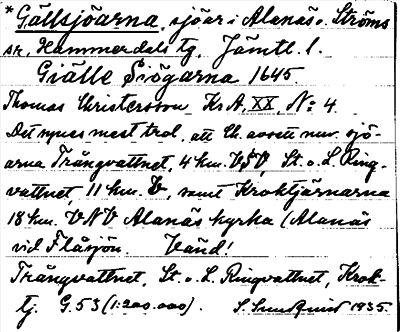 *Gällsjöarna, sjöar i Alanäs o. Ströms
sr, Hammerdals tg, Jämtl. l.
Giälle Siögarna 1645.
Thomas Christersson KrA, XX, No 4.
Det synes mest trol. att Ch. avsett nuv. sjö-
arna Trångvattnet, 4 km. VSV, St. o. L. Ring-
vattnet, 11 km. V, samt Kroktjärnarna
18 km. VNV Alanäs kyrka (Alanäs
vid Flåsjön. Vänd!
Trångvattnet, St. o. L. Ringvattnet, Krok-
tj. G. 53 (1:200.000). 1935.